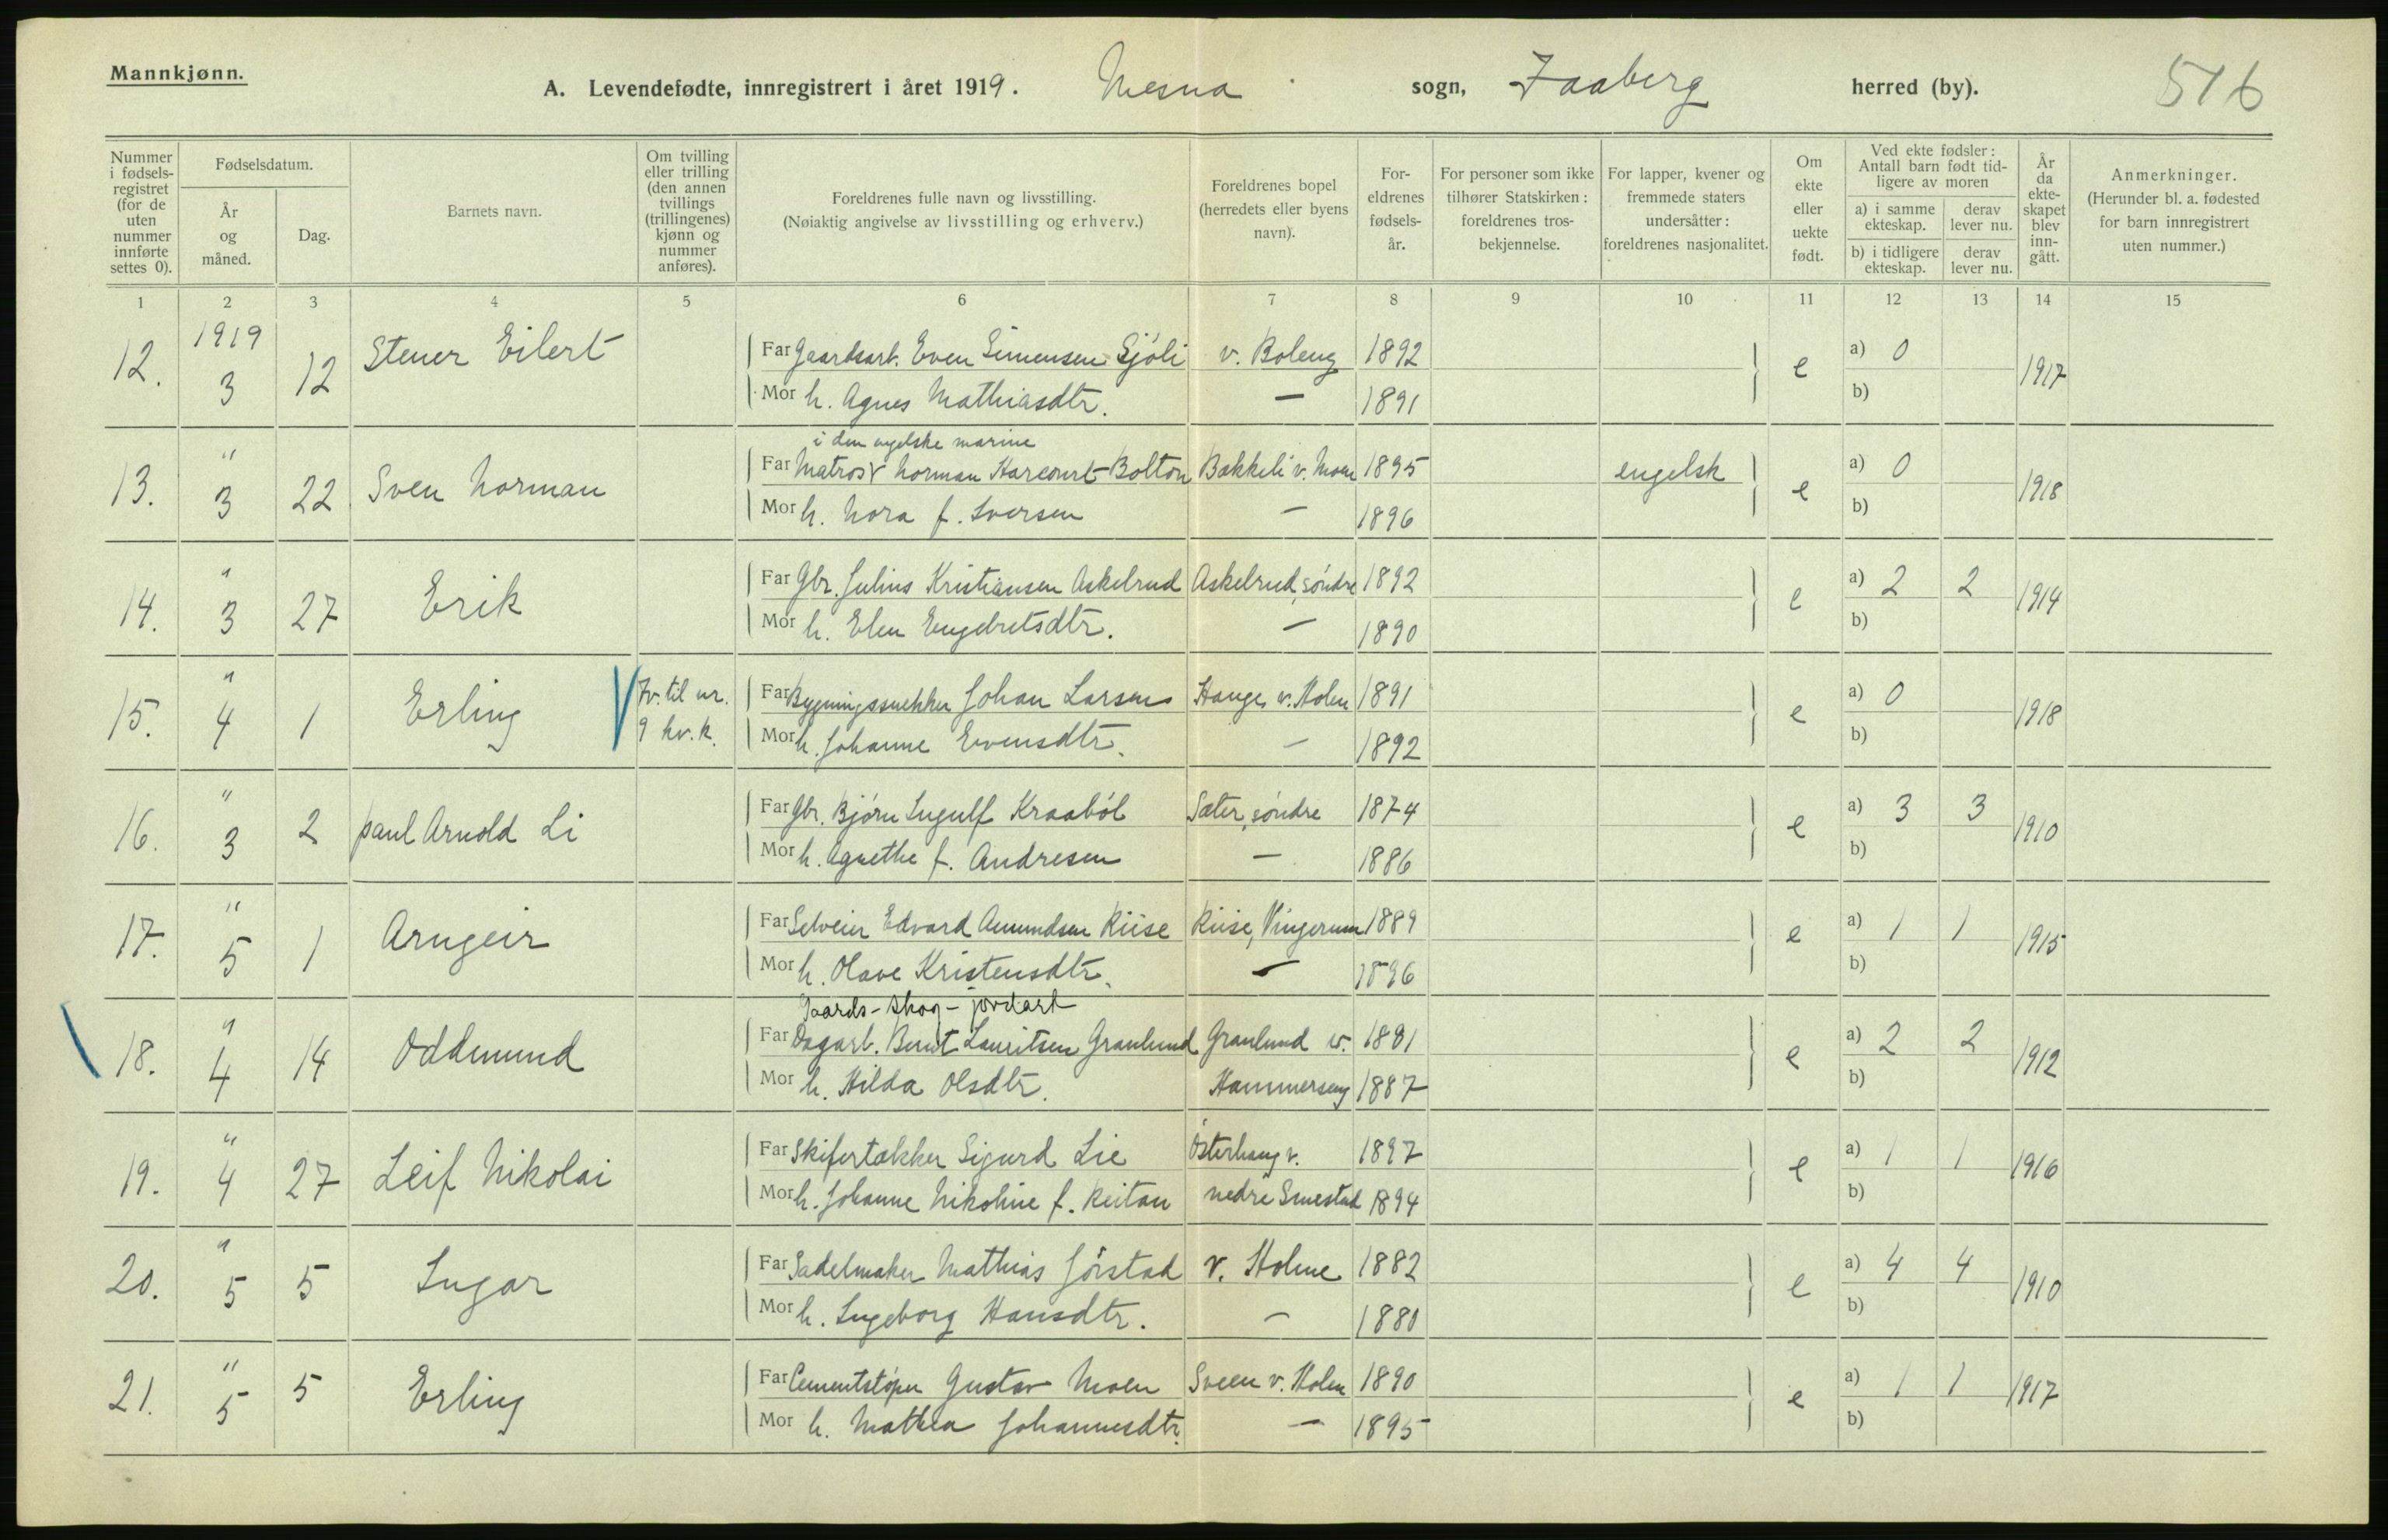 Mannkjønn.
A. Levendefødte, innregistrert i året 1919. Mesna sogn, Faaberg herred (by). 516
Nummer i fødsels-registret (for de uten nummer innførte settes 0).
Fødselsdatum.
År og måned.
Dag.
Barnets navn.
Om tvilling eller trilling (den annen tvillings (trillingenes) kjønn og nummer anføres).
Foreldrenes fulle navn og livsstilling.
(Nøiaktig angivelse av livsstilling og erhverv.)
Foreldrenes bopel (herredets eller byens navn).
For-eldrenes fødsels-år.
For personer som ikke tilhører Statskirken: foreldrenes tros-bekjennelse.
For lapper, kvener og fremmede staters undersåtter: foreldrenes nasjonalitet.
Om ekte eller uekte født.
Ved ekte fødsler: Antall barn født tid-ligere av moren
a) i samme ekteskap. derav lever nu.
b) i tidligere ekteskap. derav lever nu.
År da ekte-skapet blev inn-gått.
Anmerkninger.
(Herunder bl. a. fødested for barn innregistrert uten nummer.)
1 2 3 4 5 6 7 8 9 10 11 12 13 14 15
12. 1919 3 12 Stener Eilert Far Gaardsarb. Even Simensen Sjöli v. Boleng 1892 e a) 0 1917
Mor h. Agnes Mathiasdtr. — 1891 b)
i den engelske marine
13. " 3 22 Sven Norman Far Matros Norman Harcourt-Bolton Bakkeli v. Moen 1895 engelsk e a) 0 1918
Mor h. Nora f. Iversen — 1896 b)
14. " 3 27 Erik Far Gbr. Julius Kristiansen Askelrud Askelrud, söndre 1892 e a) 2 2 1914
Mor h. Elen Engebretsdtr. — 1890 b)
15. " 4 1 Erling Tv. til nr. 9 kv.k. Far Bygningssnekker Johan Larsen Hauge v. Holen 1891 e a) 0 1918
Mor h. Johanne Evensdtr. — 1892 b)
16. " 3 2 Paul Arnold Li Far Gbr. Björn Ingulf Kraaböl Sæter, söndre 1874 e a) 3 3 1910
Mor h. Agnethe f. Andresen — 1886 b)
17. " 5 1 Arngeir Far Selveier Edvard Amundsen Riise Riise, Vingerum 1889 e a) 1 1 1915
Mor h. Olave Kristensdtr. — 1896 b)
Gaards- skog- jordarb
18. " 4 14 Oddmund Far Dagarb. Bernt Lauritsen Granlund Granlund v. 1881 e a) 2 2 1912
Mor h. Hilda Olsdtr. Hammerseng 1887 b)
19. " 4 27 Leif Nikolai Far Skifertækker Sigurd Lie Österhaug v. 1897 e a) 1 1 1916
Mor h. Johanne Nikoline f. Reitan nedre Smestad 1894 b)
20. " 5 5 Ingar Far Sadelmaker Mathias Jörstad v. Holme 1882 e a) 4 4 1910
Mor h. Ingeborg Hansdtr. — 1880 b)
21. " 5 5 Erling Far Cementstöper Gustav Moen Sveen v. Holen 1890 e a) 1 1 1917
Mor h. Mathea Johannesdtr. — 1895 b)